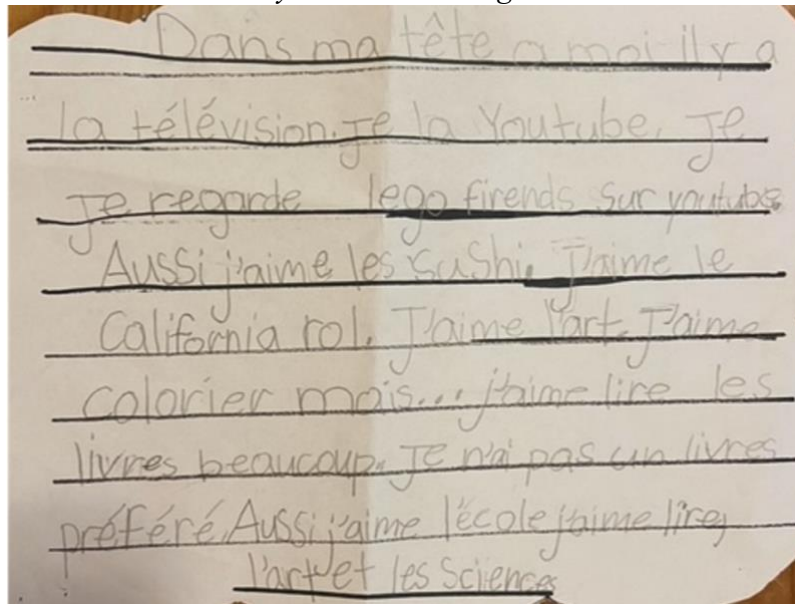 Dans ma tête a moi il y a
la télévision. Je la Youtube. Je
Je regarde lego firends sur youtube.
Aussi j'aime les sushi. J'aime le
California rol. J'aime l'art. J'aime
colorier mais... j'aime lire les
livres beaucoup. Je n'ai pas un livres
préféré. Aussi j'aime l'école j'aime lire,
l'art et les Sciences